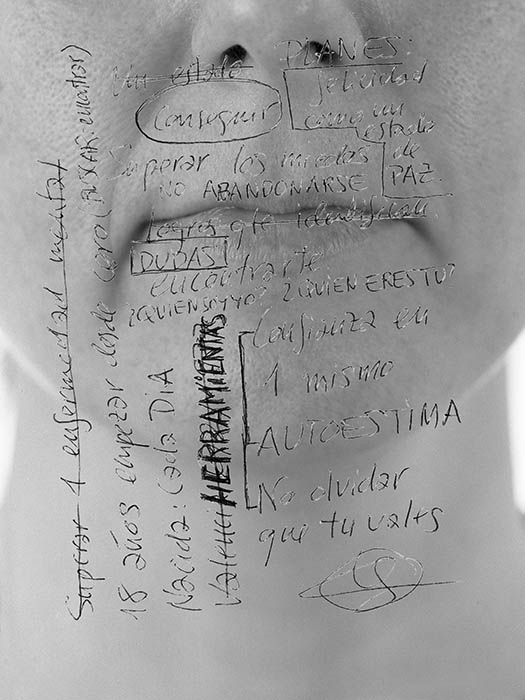 PLANES:
Un estado
felicidad
Conseguir
como un
estado
Superar los miedos
de
NO ABANDONARSE
PAZ.
Logros q te identifican
DUDAS
encontrarte
¿QUIEN SOY YO? ¿QUIEN ERES TU?
Confianza en
1 mismo
AUTOESTIMA
No olvidar
que tu vales
Superar 1 enfermedad mental
18 años empezar desde cero
Nacida: Cada DIA
HERRAMIENTAS